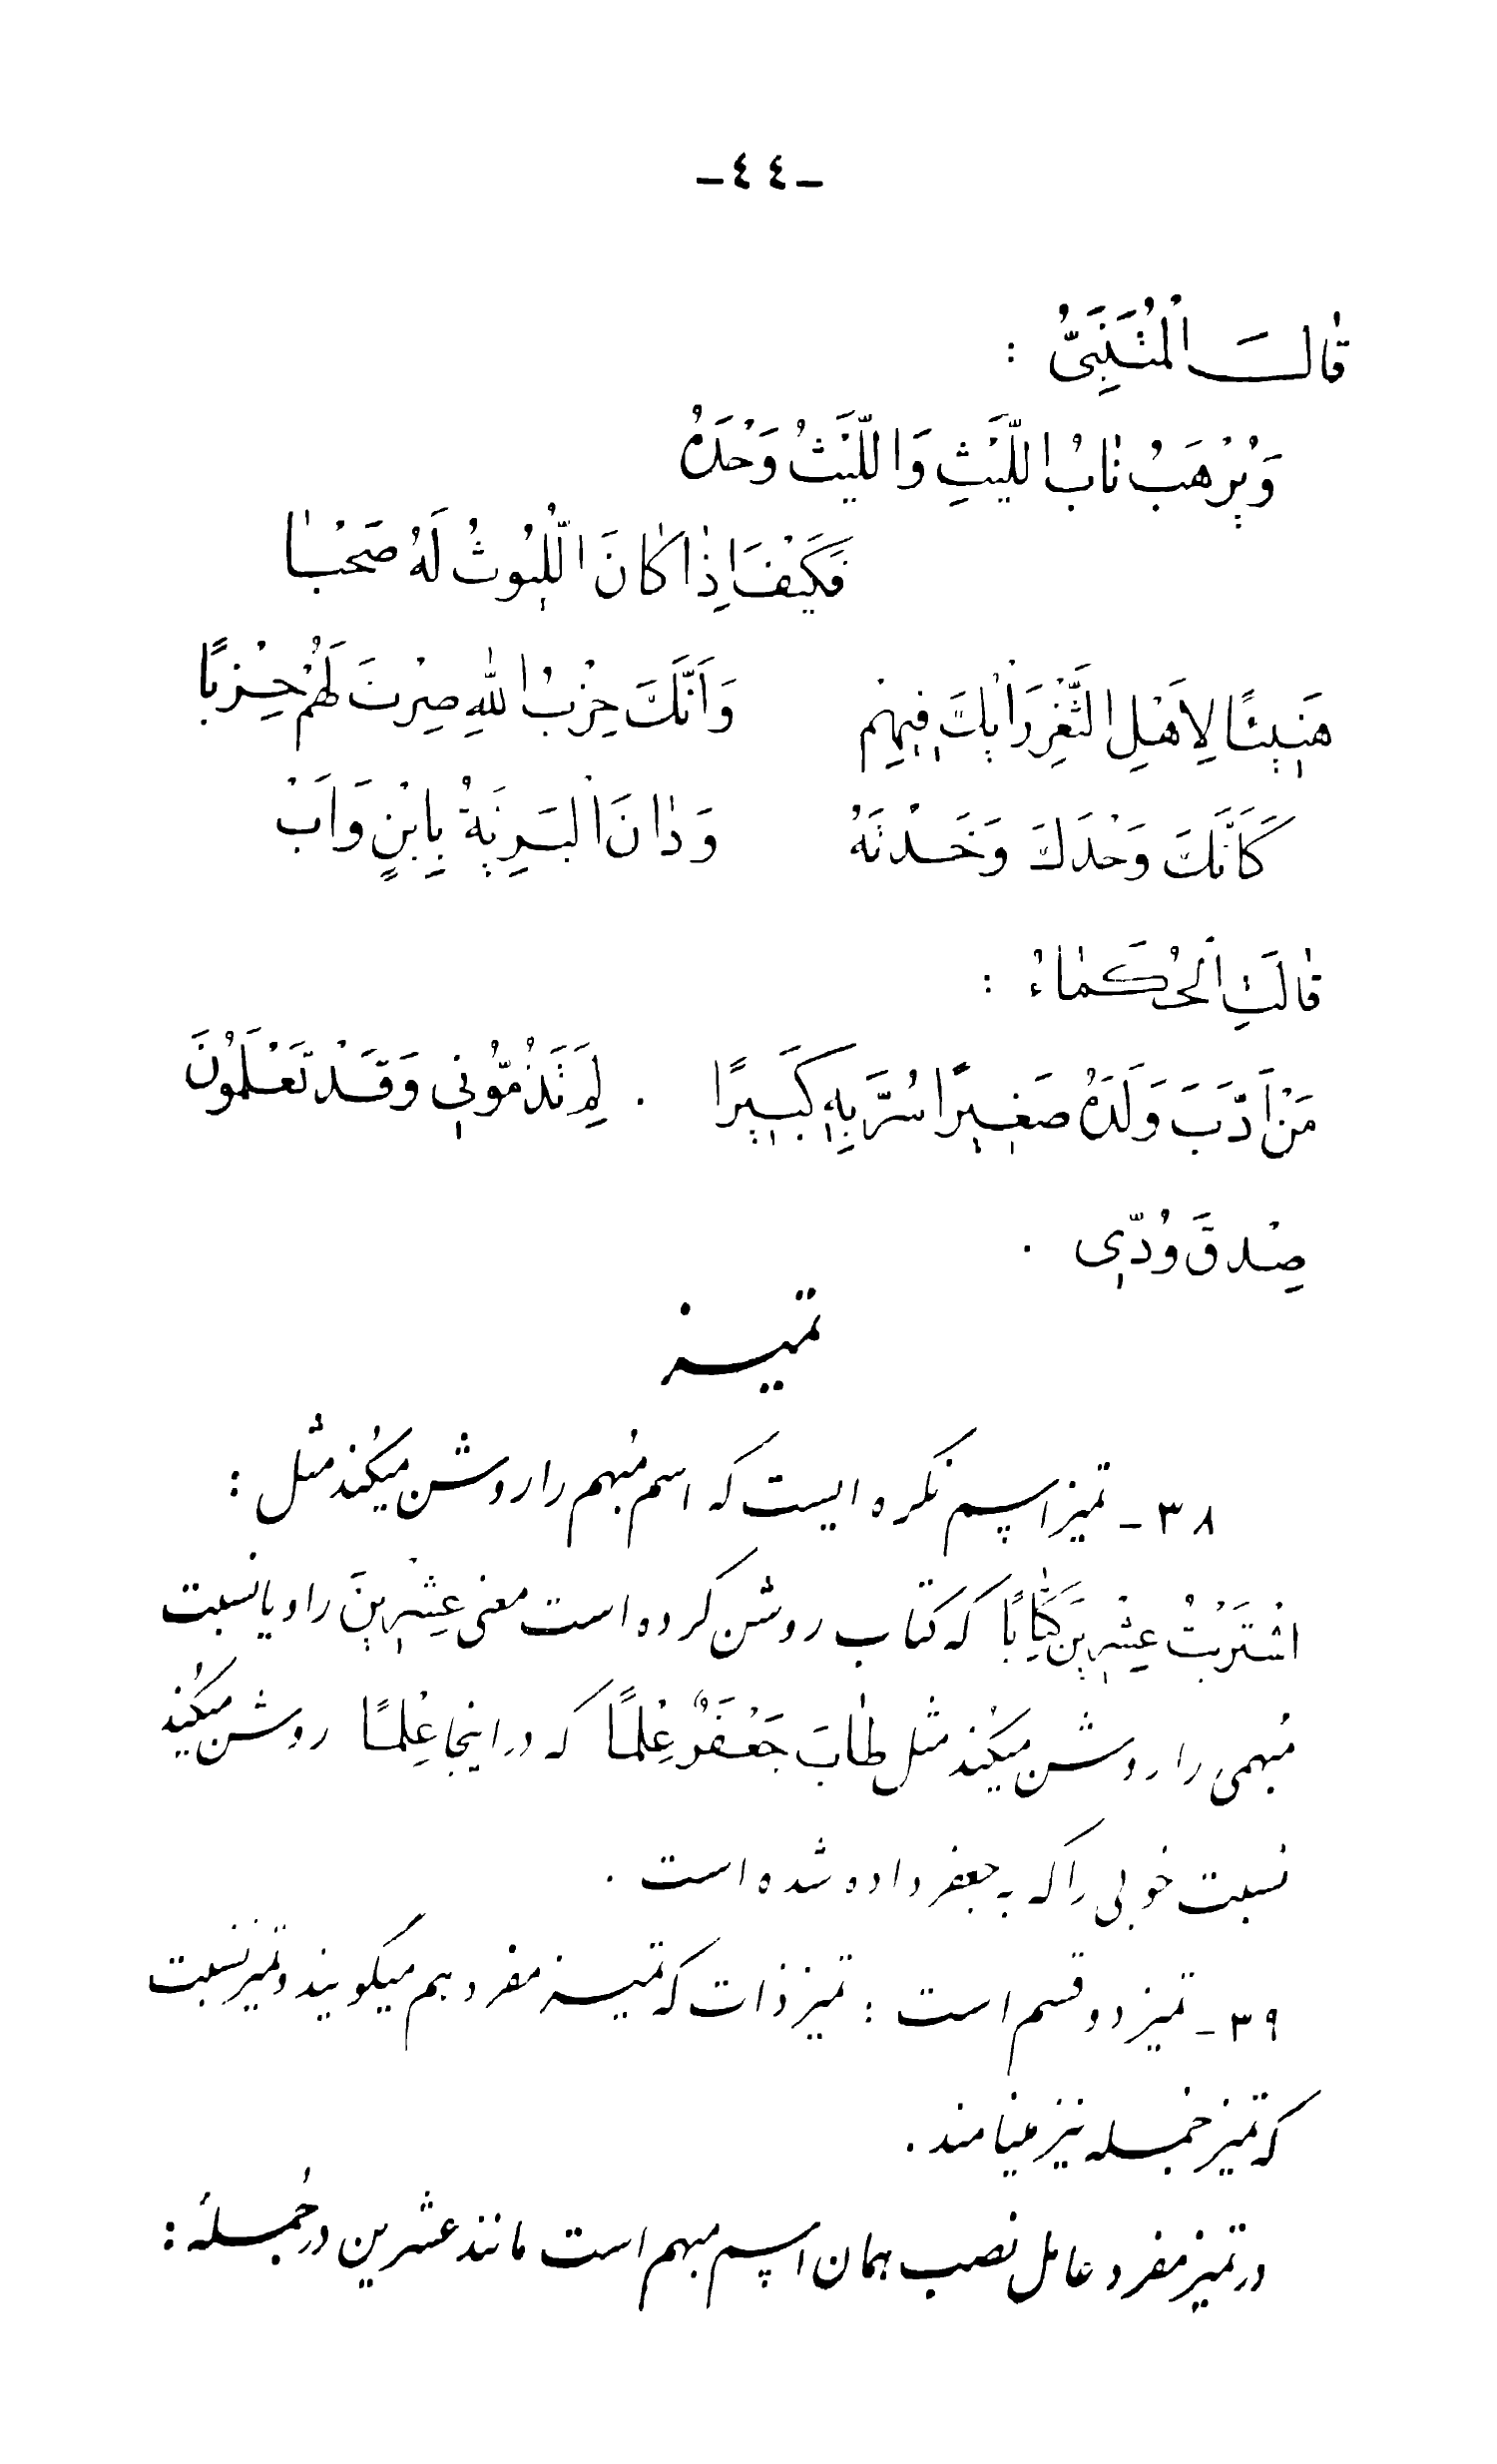 -٤٤-
قٰالَ الْمُتَنَبِّىُّ :
وَيُرْهَبُ نٰابُ اللَّيْثِ وَاللَّيْثُ وَحْدَهُ
فَكَيْفَ اِذٰا كٰانَ اللُّيُوثُ لَهُ صَحْبٰا
هَنيئًا لِاَهْلِ الثَّغْرِ رَأْيُكَ فيهِمْ وَاَنَّكَ حِزْبُ اللهِ صِرْتَ لَهُمْ حِزْبًا
كَاَنَّكَ وَحْدَكَ وَحَّدْتَهُ وَدٰانَ الْبَرِيَّةُ بِابْنٍ وَاَبْ
قٰالَتِ الْحُكَمٰاءُ :
مَنْ اَدَّبَ وَلَدَهُ صَغيرًا سُرَّ بِهِ كَبيرًا . لِمَ تَذُمُّونى وَقَدْ تَعْلَمُونَ
صِدْقَ وُدّى .
تمیز
۳۸ - تمیز اسم نکره ایست که اسم مُبهم را روشن میکُند مثل :
اشْتَرَيْتُ عِشْرينَ كِتٰابًا که کتاب روشن کرده است معنی عِشْرينَ را و یا نسبت
مُبهمی را روشن میکُند مثل طٰابَ جَعْفَرٌ عِلْمًا که در اینجا عِلْمًا روشن میکُند
نسبت خوبی را که به جعفر داده شده است .
۳۹ - تمیز دو قسم است : تمیز ذات که تمیز مفرد هم میگویند و تمیز نسبت
که تمیز جُمله نیز مینامند .
در تمیز مفرد عامل نصب همان اسم مبهم است مانند عشرین در جُملهٔ :